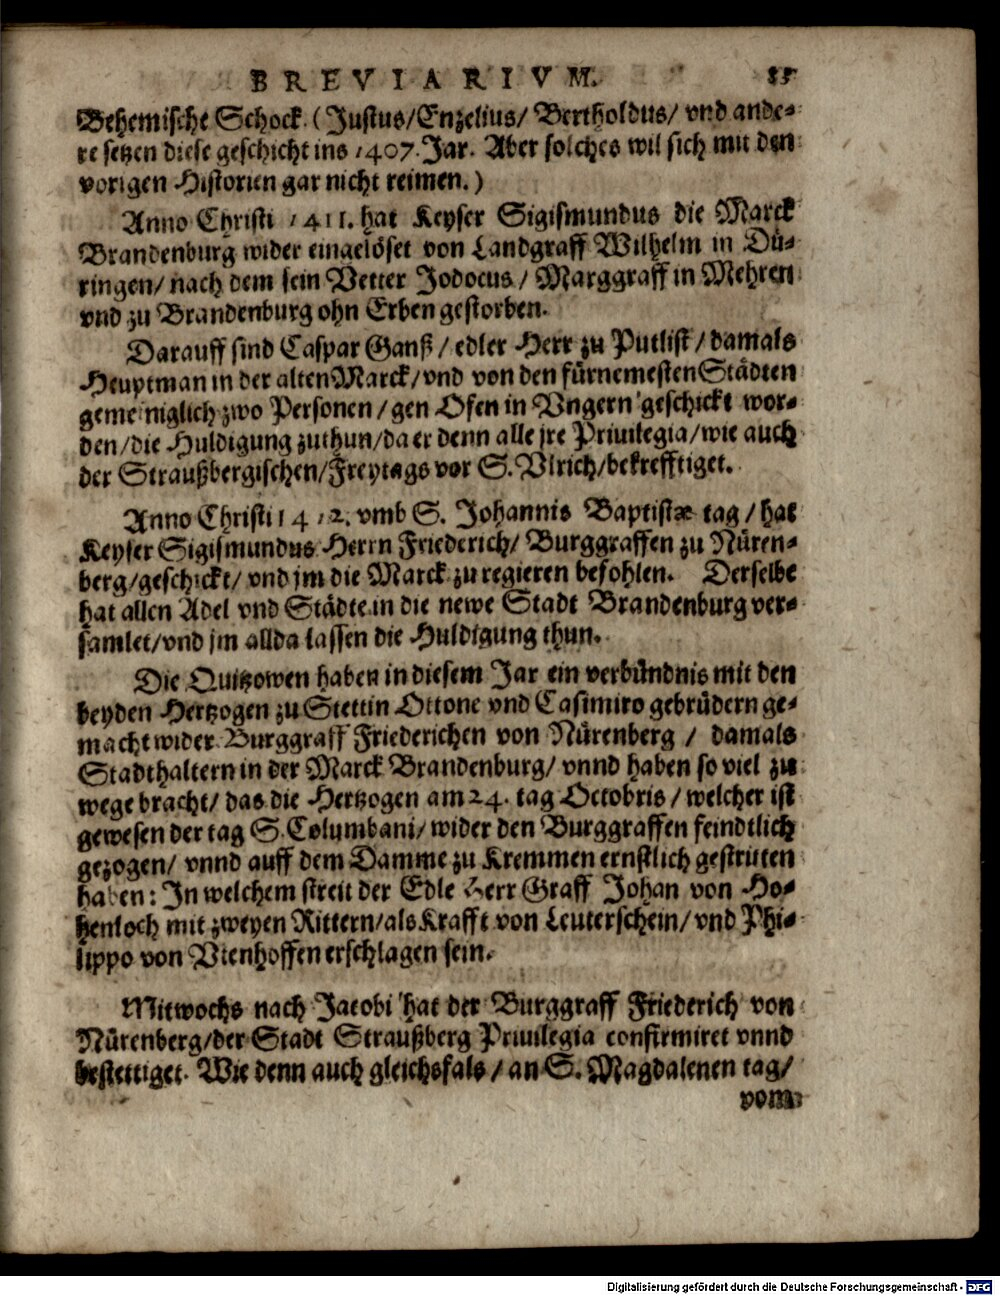 BREVIARIVM. 55
Behemische Schock. (Justus/Enzelius/ Bertholdus/ vnd ande-
re setzen diese geschicht ins 1407. Jar. Aber solches wil sich mit den
vorigen Historien gar nicht reimen.)
Anno Christi 1411. hat Keyser Sigismundus die Marck
Brandenburg wider eingelöset von Landgraff Wilhelm in Dü-
ringen/ nach dem sein Vetter Jodocus/ Marggraff in Mehren
vnd zu Brandenburg ohn Erben gestorben.
Darauff sind Caspar Ganß/ edler Herr zu Putlist/ damals
Heuptman in der alten Marck/ vnd von den fürnemesten Städten
gemeiniglich zwo Personen/ gen Ofen in Vngern geschickt wor-
den/ die Huldigung zuthun/ da er denn alle jre Priuilegia/ wie auch
der Straußbergischen/ Freytags vor S. Vlrich/ bekrefftiget.
Anno Christi 1412. vmb S. Johannis Baptistæ tag/ hat
Keyser Sigismundus Herrn Friederich/ Burggraffen zu Nüren-
berg/ geschickt/ vnd jm die Marck zu regieren befohlen. Derselbe
hat allen Adel vnd Städte in die newe Stadt Brandenburg ver-
samlet/ vnd jm allda lassen die Huldigung thun.
Die Quitzowen haben in diesem Jar ein verbündnis mit den
beyden Hertzogen zu Stettin Ottone vnd Casimiro gebrüdern ge-
macht wider Burggraff Friederichen von Nürenberg/ damals
Stadthaltern in der Marck Brandenburg/ vnnd haben so viel zu
wege bracht/ das die Hertzogen am 24. tag Octobris/ welcher ist
gewesen der tag S. Columbani/ wider den Burggraffen feindtlich
gezogen/ vnnd auff dem Damme zu Kremmen ernstlich gestritten
haben: In welchem streit der Edle Herr Graff Johan von Ho-
henloch mit zweyen Rittern/ als Krafft von Leuterschein/ vnd Phi-
lippo von Vtenhoffen erschlagen sein.
Mitwochs nach Jacobi hat der Burggraff Friederich von
Nürenberg/ der Stadt Straußberg Priuilegia confirmiret vnnd
bestettiget. Wie denn auch gleichsfals/ an S. Magdalenen tag/
vom
Digitalisierung gefördert durch die Deutsche Forschungsgemeinschaft - DFG